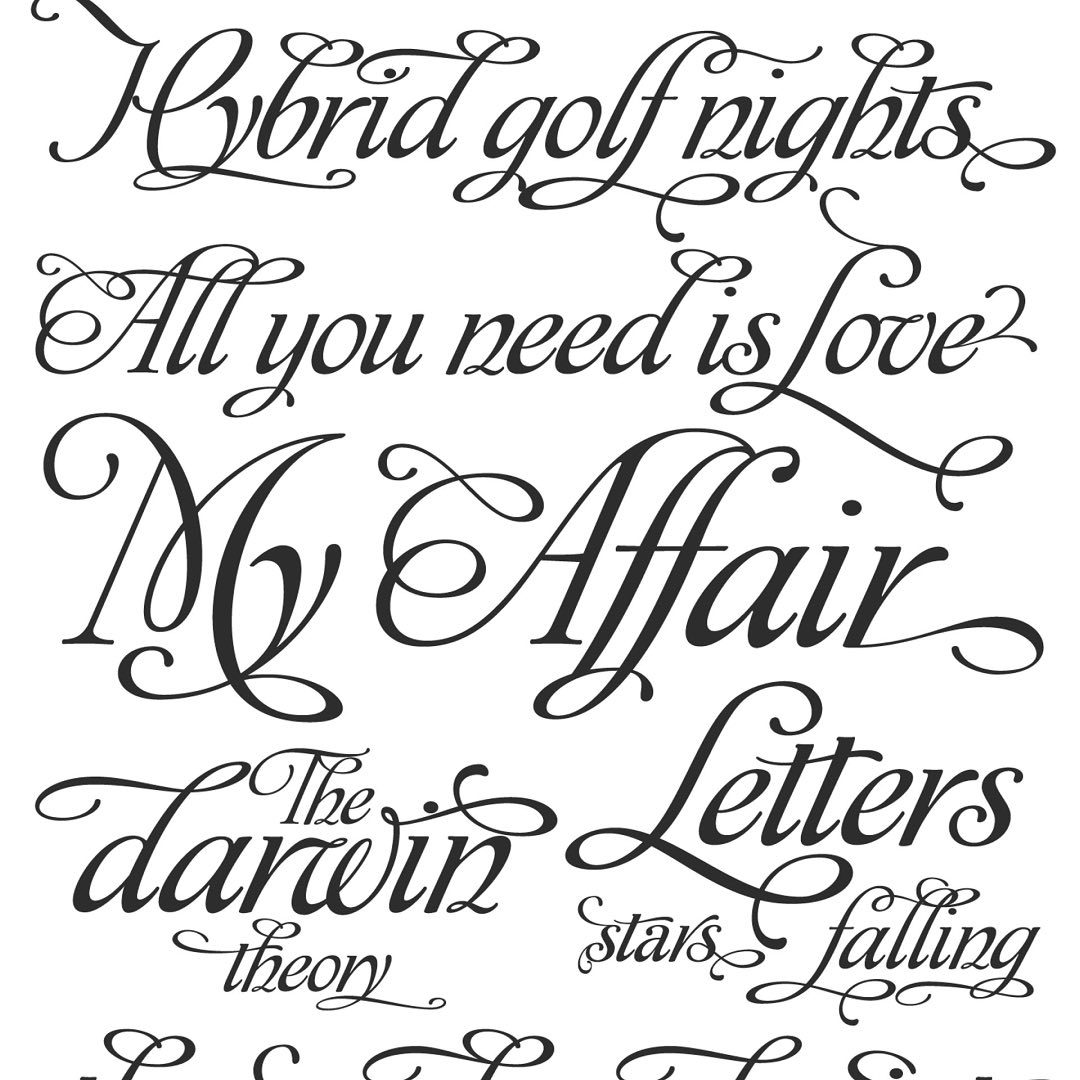 Hybrid golf nights
All you need is Love
My Affair
The
darwin
theory
Letters
stars falling